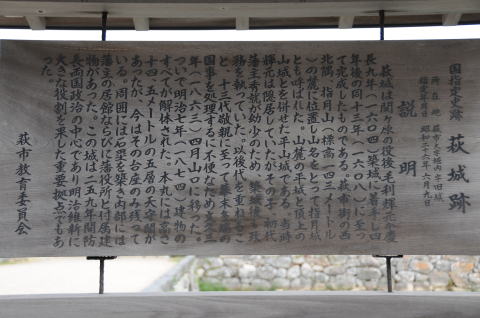 国指定史跡 萩城跡
所在地 萩市大字堀内字旧城
指定年月日 昭和二六年六月九日
説明
萩城は関ヶ原の役後毛利輝元が慶
長九年(一六〇四)築城に着手し四
年後の同十三年(一六〇八)に至っ
て完成したものである。萩市街の西
北隅、指月山(標高一四三メートル
)の麓に位置し山名をとって指月城
とも呼ばれた。山麓の平城と頂上の
山城とを併せた平山城である。当時
輝元は隠居していたがその子、初代
藩主秀就が幼少のため、築城後も政
務を執っていた。以後代を重ねるこ
と、十三代敬親に至って幕末多端の
国事を処理するに不便なため文久三
年(一八六三)四月山口に移った。
ついで明治七年(一八七四)建物の
すべてが解体された。本丸には高さ
十四・五メートルの五層の天守閣が
あったが、今はその台座のみ残って
いる。周囲には石塁を築き内部には
藩主の居館ならびに藩役所と付属建
物があった。この城は二五九年間防
長両国政治の中心であり明治維新に
大きな役割を果した重要拠点でもあ
った。
萩市教育委員会